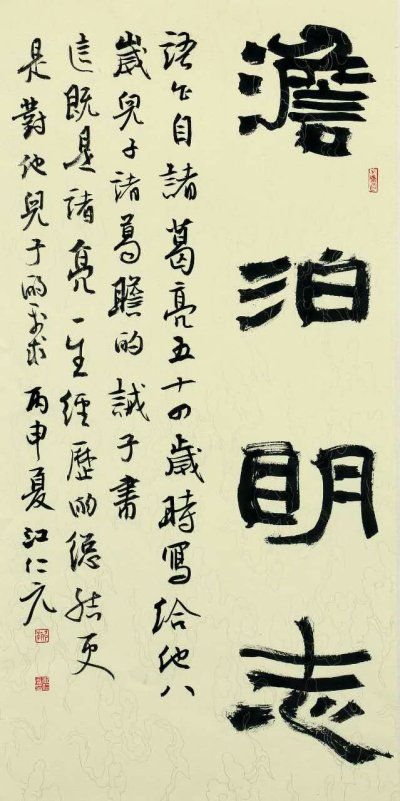 澹泊明志
語出自諸葛亮五十四歲時寫給他八
歲兒子諸葛瞻的誡子書
這既是諸亮一生經歷的總結更
是對他兒子的要求 丙申夏 江仁元